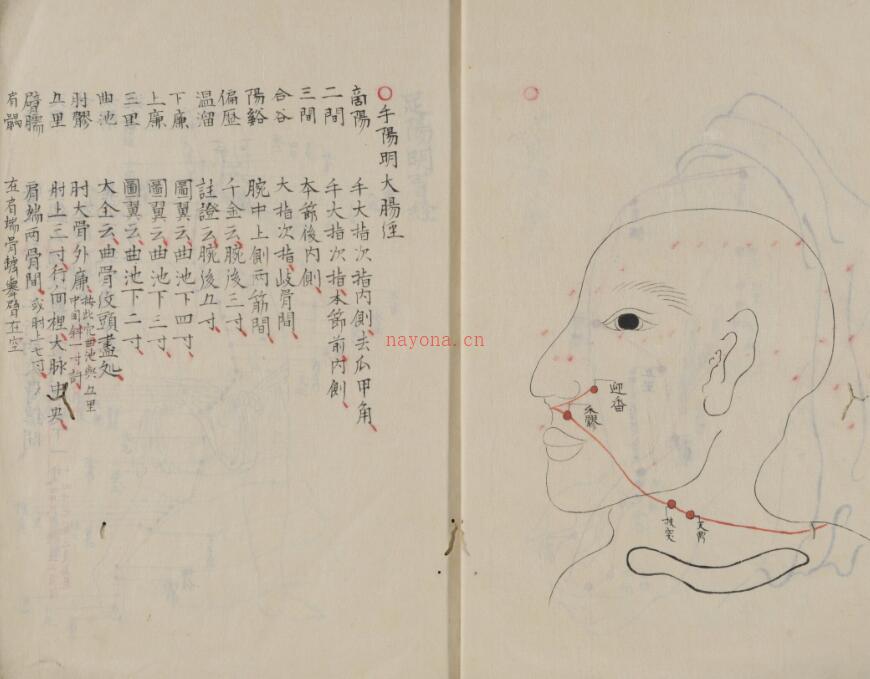 手陽明大腸經
商陽 手大指次指內側去爪甲角
二間 手大指次指本節前內側
三間 本節後內側
合谷 大指次指歧骨間
陽谿 腕中上側兩筋間
偏歷 千金云腕後三寸
溫溜 註證云腕後五寸
下廉 圖翼云曲池下四寸
上廉 圖翼云曲池下三寸
三里 圖翼云曲池下二寸
曲池 大全云曲骨紋頭盡処
肘髎 肘大骨外廉 按此宂曲池與五里中間斜一寸許
五里 肘上三寸行向裡大脉中央
臂臑 肩端兩骨間 或肘上七寸
肩髃 在肩端骨罅舉臂有空
迎香
禾髎
扶突
天鼎
nayona.cn